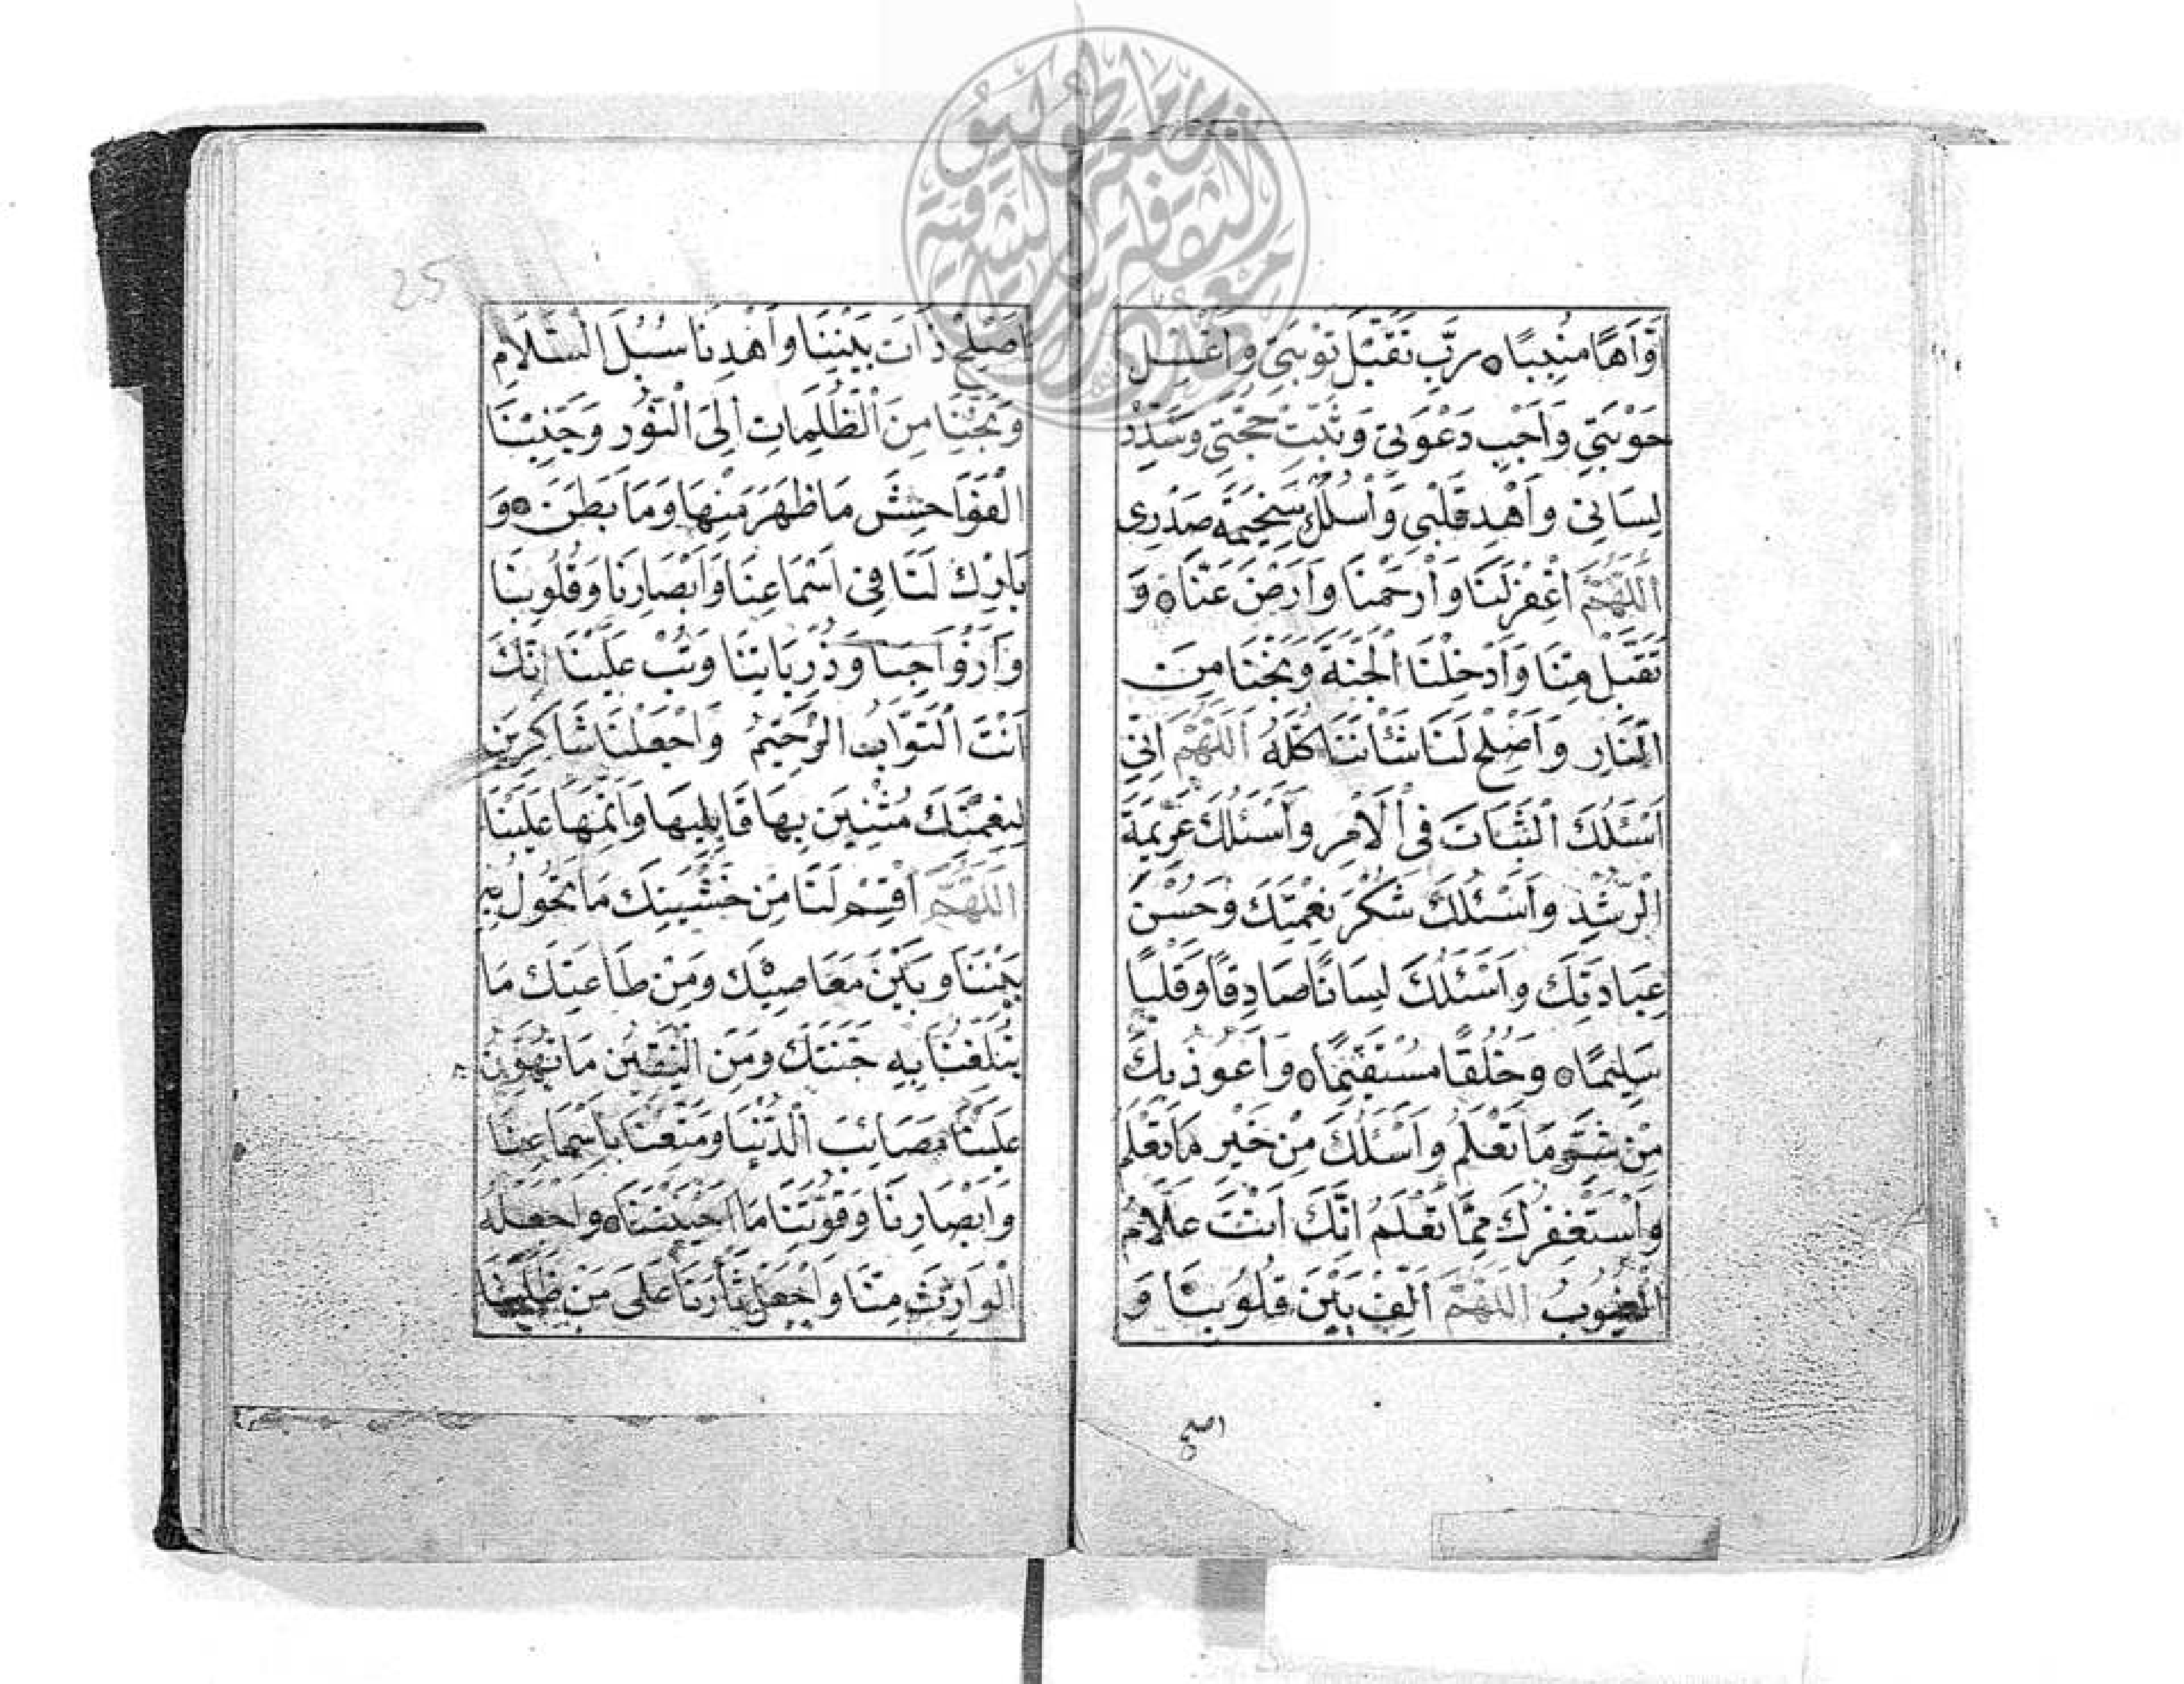 اَوَّاهًا مُنِيبًا رَبِّ تَقَبَّلْ تَوْبَتِي وَاغْسِلْ
حَوْبَتِي وَاَجِبْ دَعْوَتِي وَثَبِّتْ حُجَّتِي وَسَدِّدْ
لِسَانِي وَاهْدِ قَلْبِي وَاسْلُلْ سَخِيمَةَ صَدْرِي
اَللّٰهُمَّ اغْفِرْ لَنَا وَارْحَمْنَا وَارْضَ عَنَّا وَ
تَقَبَّلْ مِنَّا وَاَدْخِلْنَا الْجَنَّةَ وَنَجِّنَا مِنَ
النَّارِ وَاَصْلِحْ لَنَا شَأْنَنَا كُلَّهُ اَللّٰهُمَّ اِنِّي
اَسْئَلُكَ الثَّبَاتَ فِي الْاَمْرِ وَاَسْئَلُكَ عَزِيمَةَ
الرُّشْدِ وَاَسْئَلُكَ شُكْرَ نِعْمَتِكَ وَحُسْنَ
عِبَادَتِكَ وَاَسْئَلُكَ لِسَانًا صَادِقًا وَقَلْبًا
سَلِيمًا وَخُلُقًا مُسْتَقِيمًا وَاَعُوذُ بِكَ
مِنْ شَرِّ مَا تَعْلَمُ وَاَسْئَلُكَ مِنْ خَيْرِ مَا تَعْلَمُ
وَاَسْتَغْفِرُكَ مِمَّا تَعْلَمُ اِنَّكَ اَنْتَ عَلَّامُ
الْغُيُوبِ اَللّٰهُمَّ اَلِّفْ بَيْنَ قُلُوبِنَا وَ
اصلح
25
اَصْلِحْ ذَاتَ بَيْنِنَا وَاهْدِنَا سُبُلَ السَّلَامِ
وَنَجِّنَا مِنَ الظُّلُمَاتِ اِلَى النُّورِ وَجَنِّبْنَا
الْفَوَاحِشَ مَا ظَهَرَ مِنْهَا وَمَا بَطَنَ وَ
بَارِكْ لَنَا فِي اَسْمَاعِنَا وَاَبْصَارِنَا وَقُلُوبِنَا
وَاَزْوَاجِنَا وَذُرِّيَاتِنَا وَتُبْ عَلَيْنَا اِنَّكَ
اَنْتَ التَّوَّابُ الرَّحِيمُ وَاجْعَلْنَا شَاكِرِينَ
لِنِعْمَتِكَ مُثْنِينَ بِهَا قَابِلِيهَا وَاَتِمَّهَا عَلَيْنَا
اَللّٰهُمَّ اقْسِمْ لَنَا مِنْ خَشْيَتِكَ مَا تَحُولُ بِهِ
بَيْنَنَا وَبَيْنَ مَعَاصِيكَ وَمِنْ طَاعَتِكَ مَا
تُبَلِّغُنَا بِهِ جَنَّتَكَ وَمِنَ الْيَقِينِ مَا تُهَوِّنُ
عَلَيْنَا مَصَائِبَ الدُّنْيَا وَمَتِّعْنَا بِاَسْمَاعِنَا
وَاَبْصَارِنَا وَقُوَّتِنَا مَا اَحْيَيْتَنَا وَاجْعَلْهُ
الْوَارِثَ مِنَّا وَاجْعَلْ ثَأْرَنَا عَلَى مَنْ ظَلَمَنَا